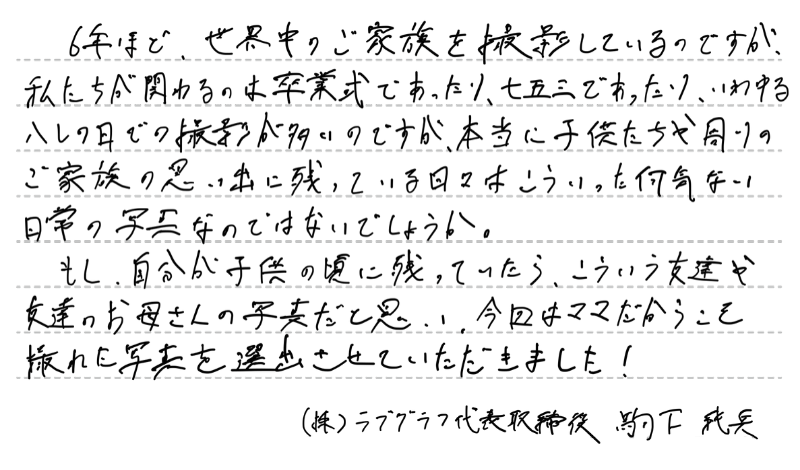 6年ほど、世界中のご家族を撮影しているのですが、
私たちが関わるのは卒業式であったり、七五三であったり、いわゆる
ハレの日での撮影が多いのですが、本当に子供たちや周りの
ご家族の思い出に残っている日々はこういった何気ない
日常の写真なのではないでしょうか。
もし、自分が子供の頃に残っていたら、こういう友達や
友達のお母さんの写真だと思い、今回はママだからこそ
撮れた写真を選出させていただきました！
(株)ラブグラフ代表取締役 駒下純兵